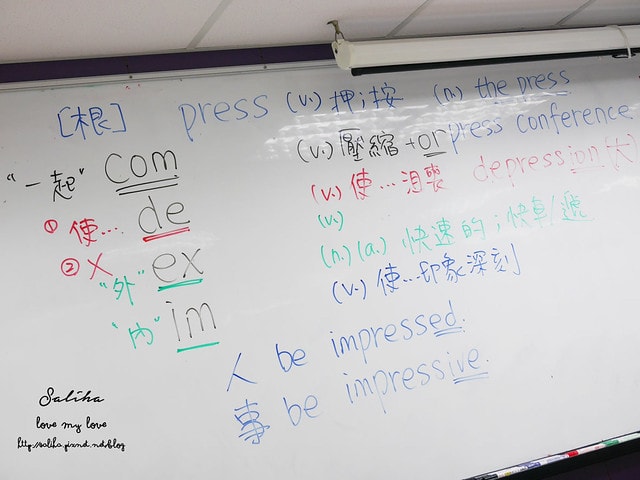 [根] press (v.) 押;按 (n.) the press
"一起" com (v.) 壓縮 +or press conference
① 使... de (v.) 使...沮喪 depression (大)
② X
"外" ex (v.)
(n.)(a.) 快速的;快車/遞
"內" im (v.) 使...印象深刻
人 be impressed.
事 be impressive.
Saliha
love my love
http://saliha.pixnet.net/blog